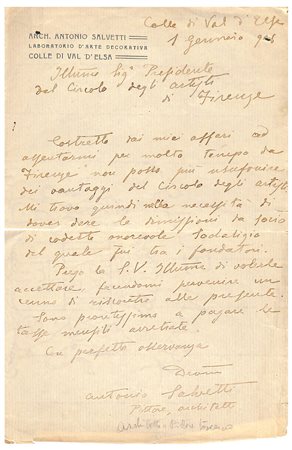 ARCH. ANTONIO SALVETTI
LABORATORIO D'ARTE DECORATIVA
COLLE DI VAL D'ELSA
Colle di Val d'Elsa
1 Gennaio 905
Illmo Sigr Presidente
del Circolo degli artisti
di Firenze
Costretto dai miei affari ad
assentarmi per molto tempo da
Firenze non posso più usufruire
dei vantaggi del Circolo degli artisti
Mi trovo quindi nella necessità di
dover dare le dimissioni da socio
di codesto onorevole Sodalizio
del quale fui tra i fondatori.
Prego la S.V. Illma di volerle
accettare facendomi pervenire un
cenno di riscontro alla presente.
Sono prontissimo a pagare le
tasse mensili arretrate.
Con perfetta osservanza
Antonio Salvetti
Pittore, architetto